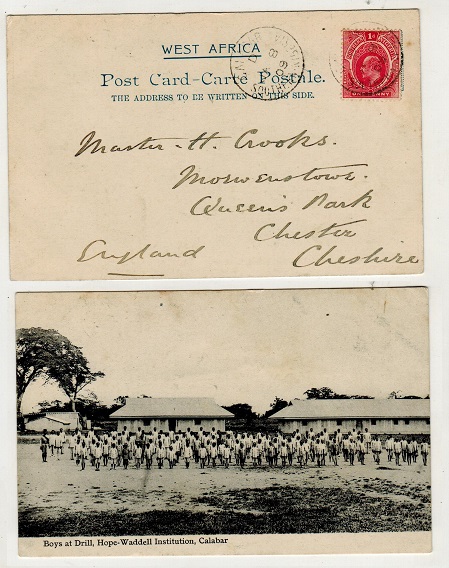 WEST AFRICA
Post Card-Carte Postale.
THE ADDRESS TO BE WRITTEN ON THIS SIDE.
Master H. Crooks.
Morwenstowe.
Queen's Park
Chester
England Cheshire
Boys at Drill, Hope-Waddell Institution, Calabar